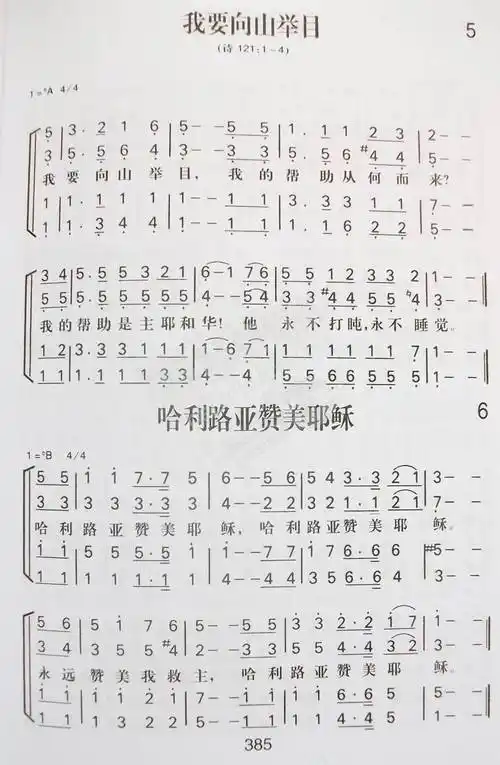 我要向山举目
5
(诗 121:1-4)
1=♭A 4/4
5 | 3. 2 1 6 | 5 - - 5 5 | 1. 1 1 2 3 | 2 - -
3 | 5. 5 6 4 | 3 - - 3 3 | 5. 5 #4 4 | 5 - -
我要向山举目, 我的帮助从何而来?
1 | 1. 1 1 1 | 1 - - 1 1 | 3. 1 1 1 | 7 - -
1 | 1. 3 4 4 | 1 - - 1 1 | 1. 1 1 1 | 5 - -
3 4 | 5. 5 5 3 2 1 | 6 - 1 7 6 | 5 5 1 2 3 3 2 | 1 - -
5 5 | 5. 5 5 5 5 5 | 4 - - 5 4 | 3 3 #4 4 5 5 ♮4 | 3 - -
我的帮助是主耶和华! 他 永不打盹,永不 睡觉。
1 2 | 3. 3 3 1 1 1 | 1 - 6 7 1
哈利路亚赞美耶稣
6
1=♭B 4/4
5 5 | i i 7·7 5 | 6 - - 5 5 | 5 4 3·3 2 1 | 3 - -
3 3 | 3 3 3·3 3 | 4 - - 5 5 | 3 2 1·1 2 1 | 1 - -
哈利路亚赞美耶 稣, 哈利路亚赞美耶 稣。
i i | 5 5 5·5 i | i - - 7 7 | i 7 6·6 6 | #5 - -
1 1 | 1 1 1·1 1 | 4 - - 4 4
5 6 | 5 i 7 6 | 5 - - 5 5 | 3 3 2·2 1 7 | 1 - -
3 4 | 5 5 5 #4 | 5 - - 5 5 | 5 5 4·4 3 2 | 3 - -
永远赞美我救主, 哈利路亚赞美耶 稣。
385